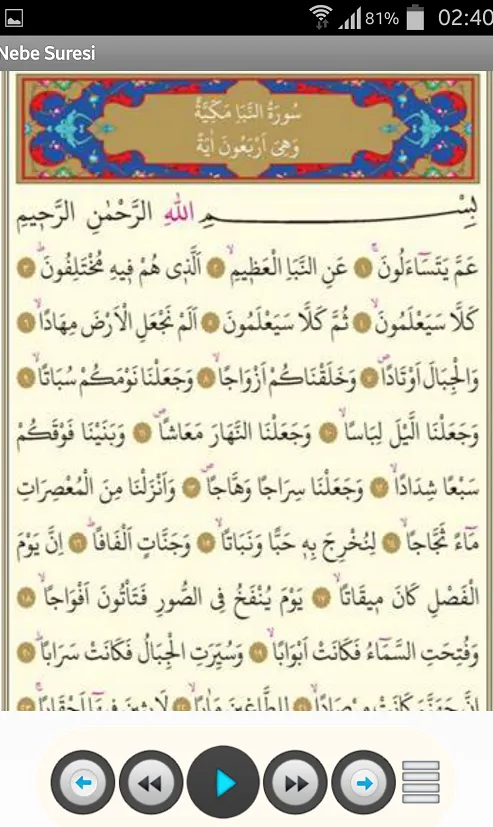 81% 02:40
Nebe Suresi
سُورَةُ النَّبَأِ مَكِّيَّةٌ
وَهِيَ اَرْبَعُونَ اٰيَةً
بِسْمِ اللّٰهِ الرَّحْمٰنِ الرَّحٖيمِ
عَمَّ يَتَسَٓاءَلُونَۚ ﴿١﴾ عَنِ النَّبَأِ الْعَظٖيمِۙ ﴿٢﴾ اَلَّذٖى هُمْ فٖيهِ مُخْتَلِفُونَؕ ﴿٣﴾
كَلَّا سَيَعْلَمُونَۙ ﴿٤﴾ ثُمَّ كَلَّا سَيَعْلَمُونَ ﴿٥﴾ اَلَمْ نَجْعَلِ الْاَرْضَ مِهَادًاۙ ﴿٦﴾
وَالْجِبَالَ اَوْتَادًاۖ ﴿٧﴾ وَخَلَقْنَاكُمْ اَزْوَاجًاۙ ﴿٨﴾ وَجَعَلْنَا نَوْمَكُمْ سُبَاتًاۙ ﴿٩﴾
وَجَعَلْنَا الَّيْلَ لِبَاسًاۙ ﴿١٠﴾ وَجَعَلْنَا النَّهَارَ مَعَاشًاۖ ﴿١١﴾ وَبَنَيْنَا فَوْقَكُمْ
سَبْعًا شِدَادًاۙ ﴿١٢﴾ وَجَعَلْنَا سِرَاجًا وَهَّاجًاۖ ﴿١٣﴾ وَاَنْزَلْنَا مِنَ الْمُعْصِرَاتِ
مَٓاءً ثَجَّاجًاۙ ﴿١٤﴾ لِنُخْرِجَ بِهٖ حَبًّا وَنَبَاتًاۙ ﴿١٥﴾ وَجَنَّاتٍ اَلْفَافًاؕ ﴿١٦﴾ اِنَّ يَوْمَ
الْفَصْلِ كَانَ مٖيقَاتًاۙ ﴿١٧﴾ يَوْمَ يُنْفَخُ فِى الصُّورِ فَتَأْتُونَ اَفْوَاجًاۙ ﴿١٨﴾
وَفُتِحَتِ السَّمَٓاءُ فَكَانَتْ اَبْوَابًاۙ ﴿١٩﴾ وَسُيِّرَتِ الْجِبَالُ فَكَانَتْ سَرَابًاؕ ﴿٢٠﴾
اِنَّ جَهَنَّمَ كَانَتْ مِرْصَادًاۙ ﴿٢١﴾ لِلطَّاغٖينَ مَاٰبًاۙ ﴿٢٢﴾ لَابِثٖينَ فٖيهَٓا اَحْقَابًاۚ ﴿٢٣﴾